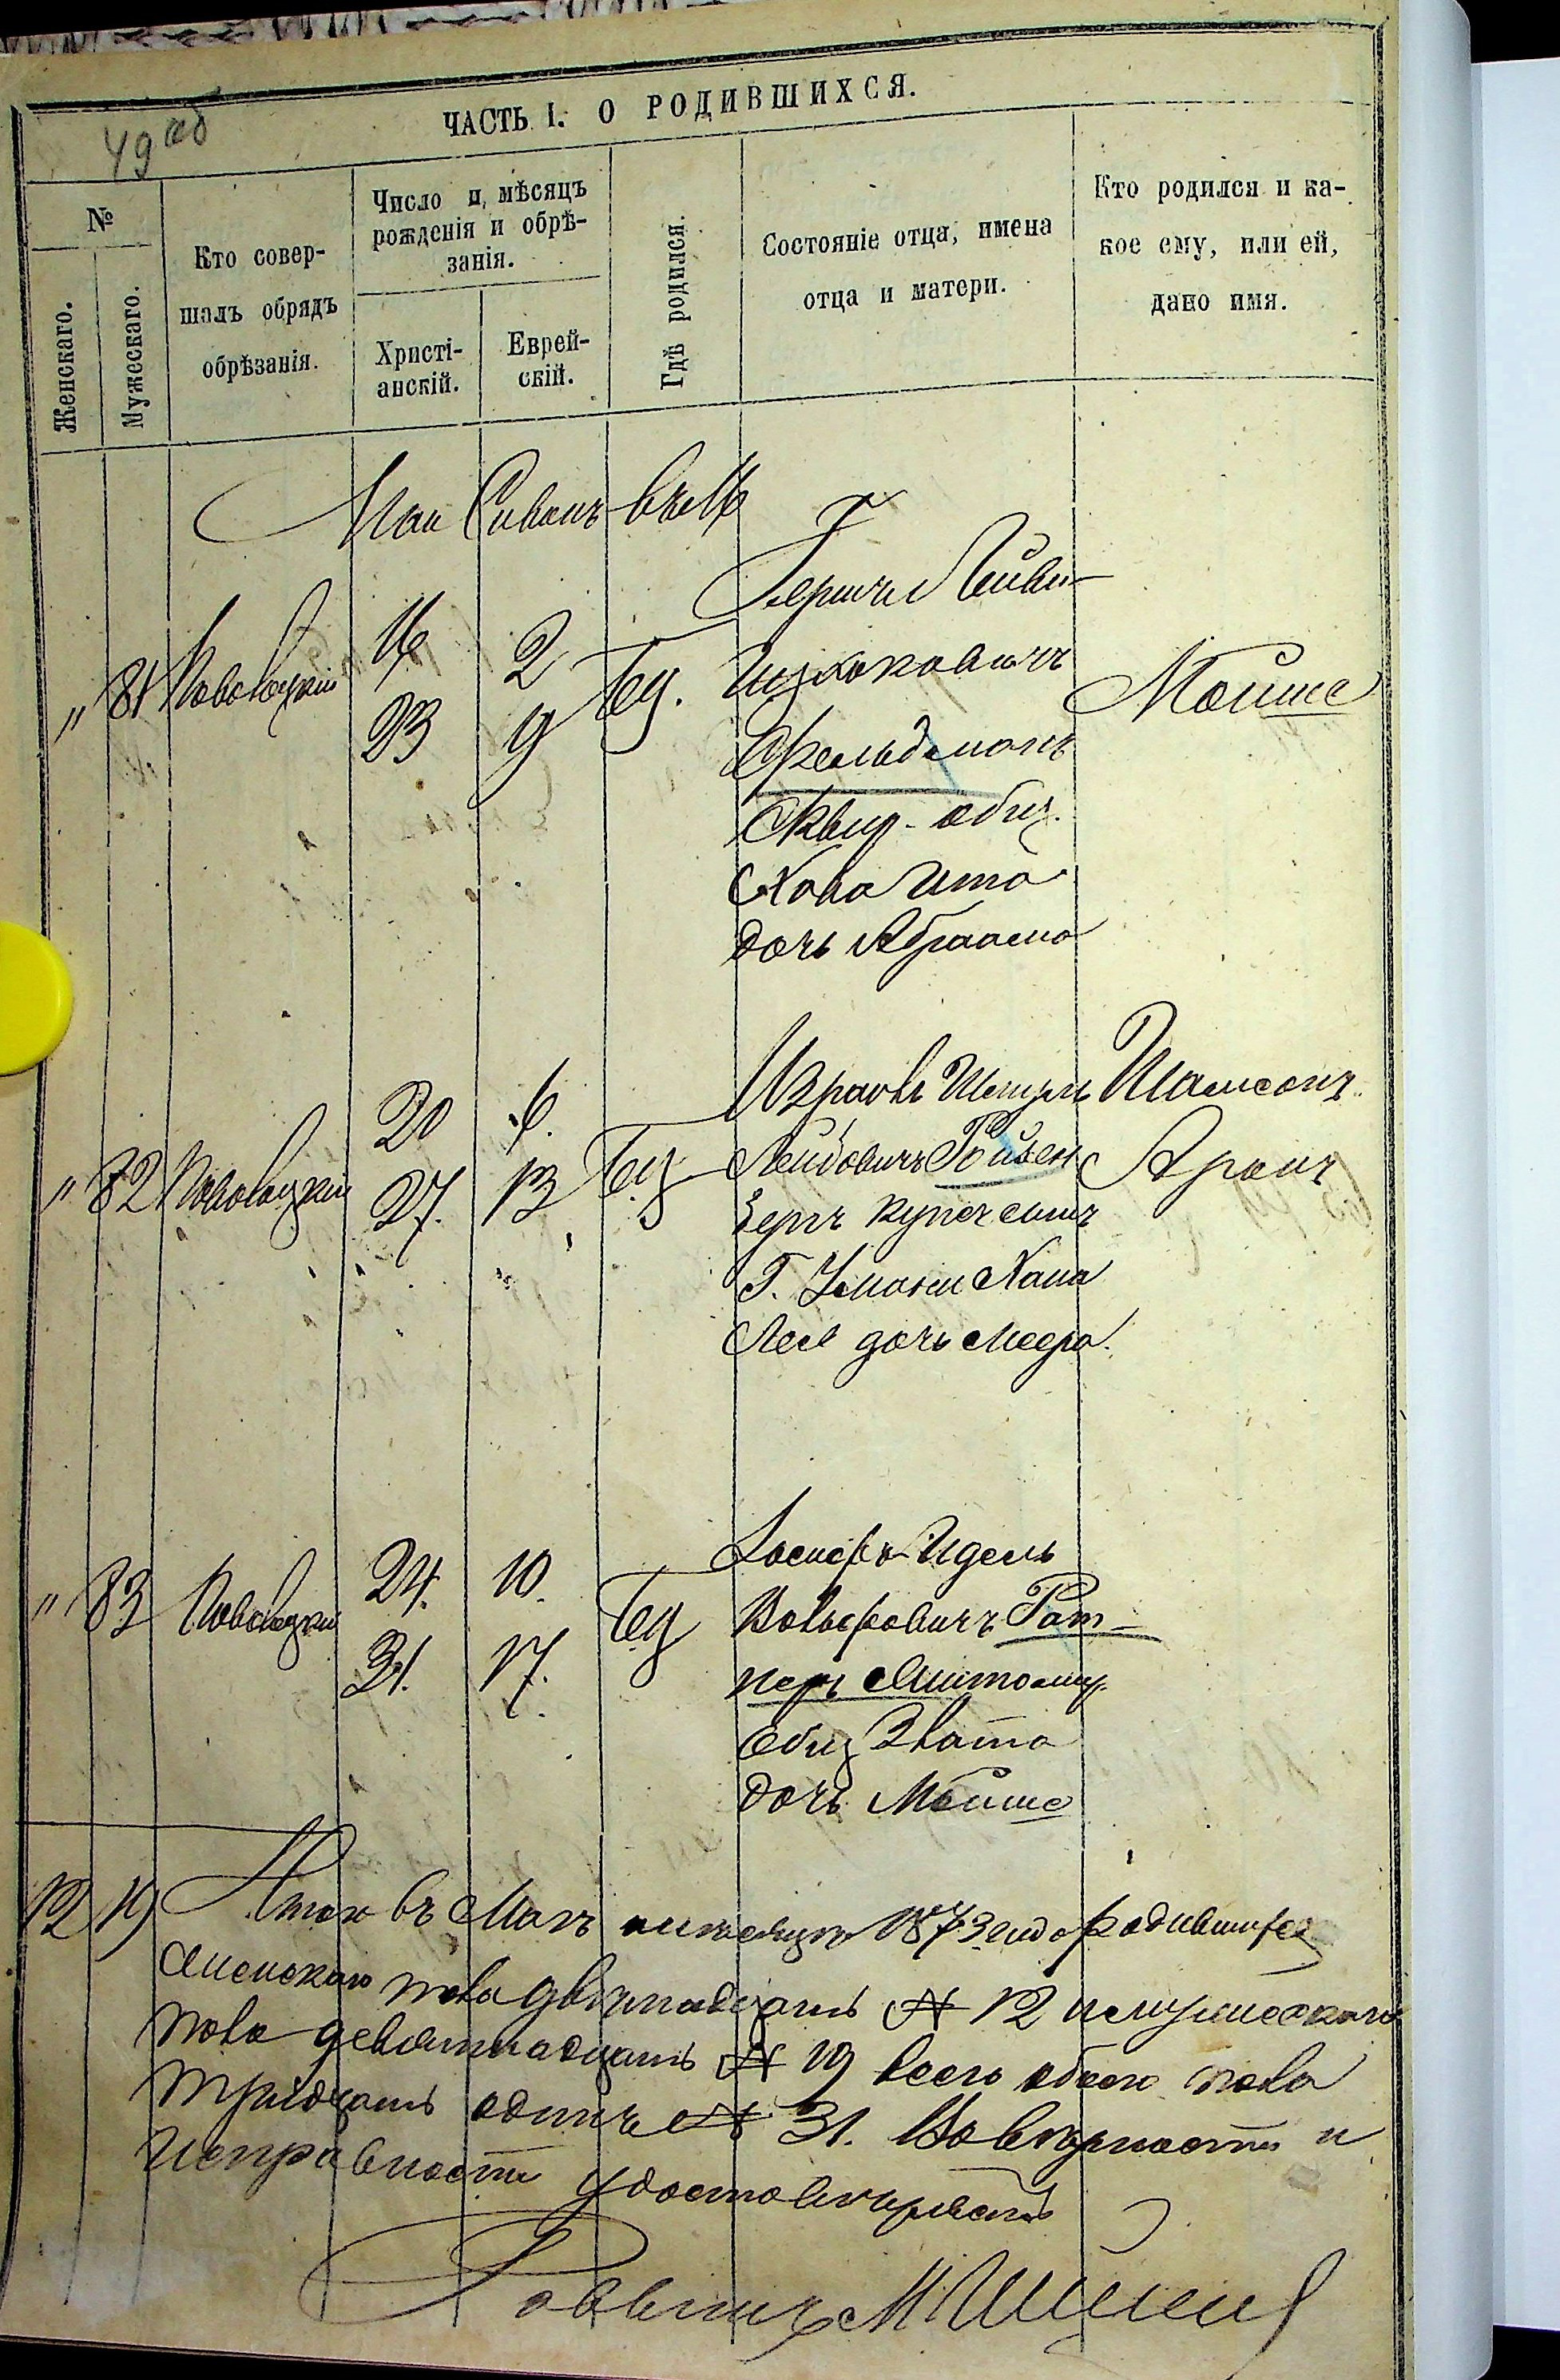 49 об
ЧАСТЬ I. О РОДИВШИХСЯ.
№
Женскаго.
Мужескаго.
Кто совер-
шалъ обрядъ
обрѣзанія.
Число и мѣсяцъ
рожденія и обрѣ-
занія.
Христі-
анскій.
Еврей-
скій.
Гдѣ родился.
Состояніе отца, имена
отца и матери.
Кто родился и ка-
кое ему, или ей,
дано имя.
Май Сиванъ
" 81
16 2
23 9
Гершъ Лейви
Ицхоковичъ
Фельдманъ
Сквир. общ.
Хава Ита
дочь Абрама
Мойше
" 82
20 6.
27. 13
Израиль Шмуль
Лейбовичъ Гойхен
бергъ купеч. сынъ
Г. Умани Хана
Лея дочь Меера.
Шамсонъ
Аронъ
" 83
24. 10.
31. 17.
Іосифъ Идель
Вольфовичъ Рат-
неръ Житомир.
Общ Злата
дочь Мойше
12 19 Итого въ Маѣ мѣсяцѣ 1873 года родившихся
женскаго пола двѣнадцать № 12 и мужескаго
пола девятнадцать № 19 всего обоего пола
тридцать одинъ № 31. Въ вѣрности и
исправности удостовѣряетъ
Раввинъ М